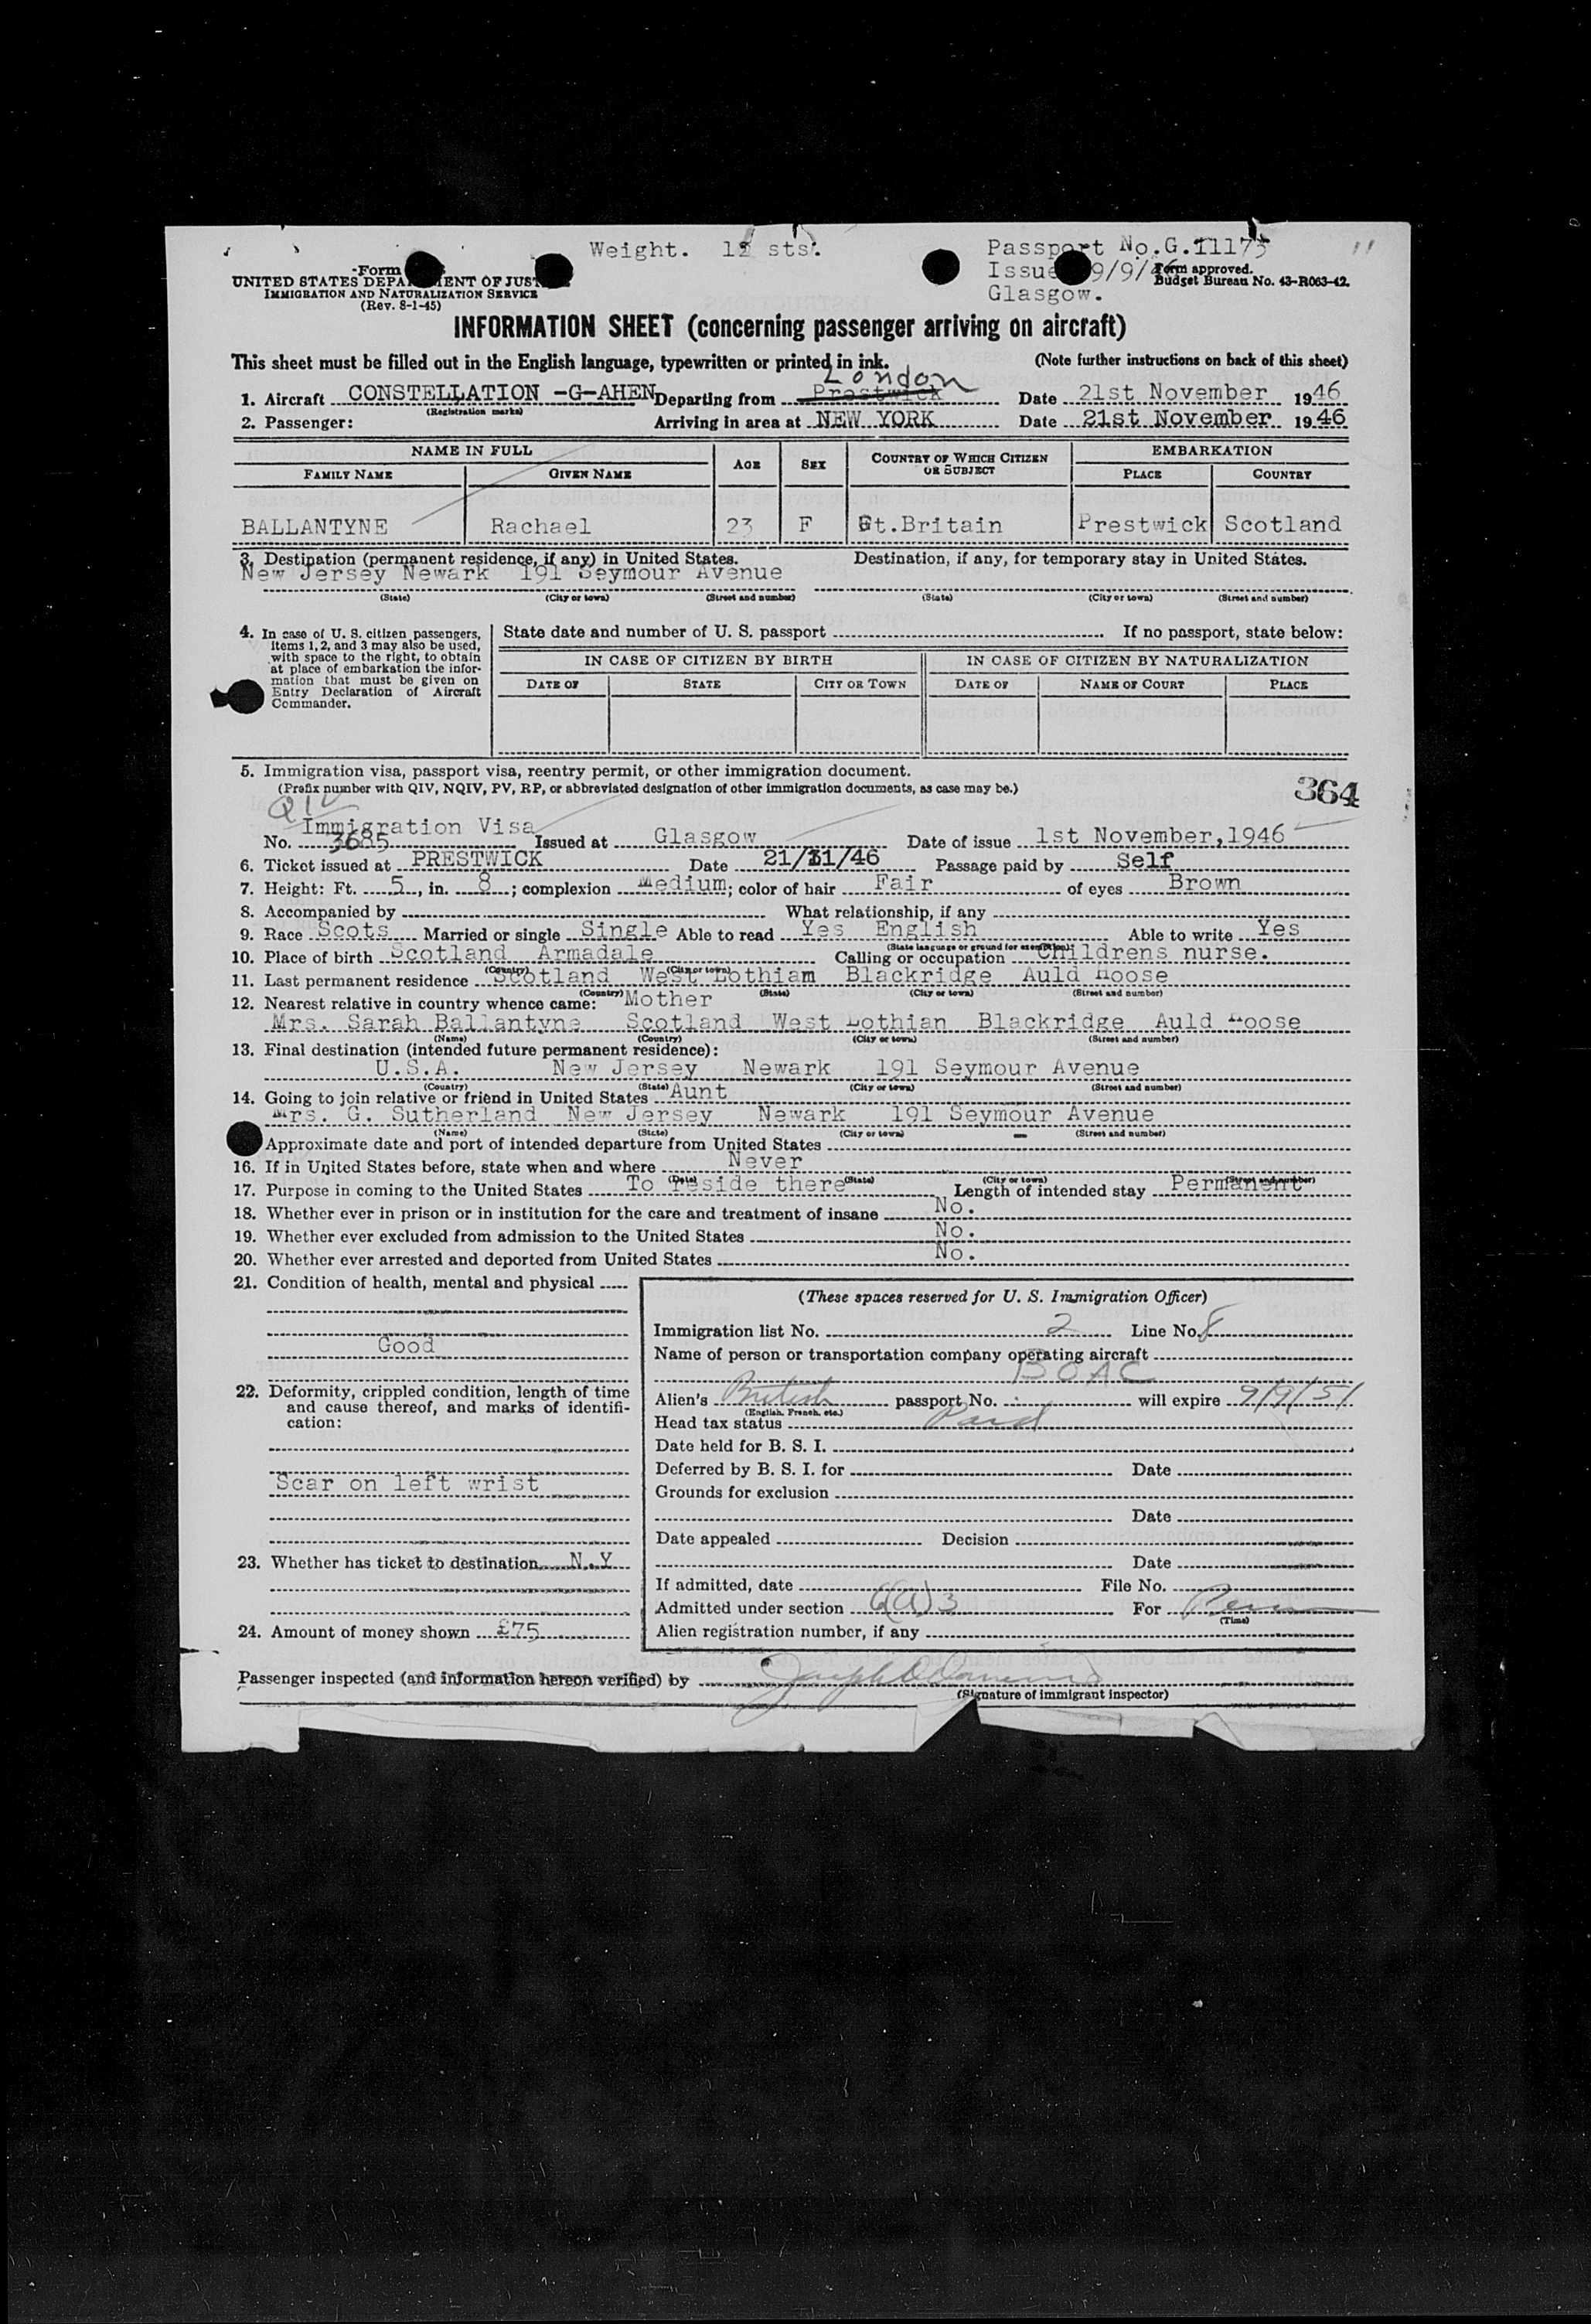 Weight. 12 sts.
Passport No.G.11175
Form
Issue 9/9/46
Form approved.
UNITED STATES DEPA MENT OF JUST
Budget Bureau No. 43-R063-42.
IMMIGRATION AND NATURALIZATION SERVICE
Glasgow.
(Rev. 8-1-45)
INFORMATION SHEET (concerning passenger arriving on aircraft)
This sheet must be filled out in the English language, typewritten or printed in ink. (Note further instructions on back of this sheet)
London
1. Aircraft CONSTELLATION -G-AHEN Departing from Prestwick Date 21st November 1946
(Registration marks)
2. Passenger: Arriving in area at NEW YORK Date 21st November 1946
NAME IN FULL AGE SEX COUNTRY OF WHICH CITIZEN OR SUBJECT EMBARKATION
FAMILY NAME GIVEN NAME PLACE COUNTRY
BALLANTYNE Rachael 23 F Gt.Britain Prestwick Scotland
3. Destination (permanent residence, if any) in United States. Destination, if any, for temporary stay in United States.
New Jersey Newark 191 Seymour Avenue
(State) (City or town) (Street and number) (State) (City or town) (Street and number)
4. In case of U. S. citizen passengers, items 1, 2, and 3 may also be used, with space to the right, to obtain at place of embarkation the information that must be given on Entry Declaration of Aircraft Commander.
State date and number of U. S. passport If no passport, state below:
IN CASE OF CITIZEN BY BIRTH IN CASE OF CITIZEN BY NATURALIZATION
DATE OF STATE CITY OR TOWN DATE OF NAME OF COURT PLACE
5. Immigration visa, passport visa, reentry permit, or other immigration document.
(Prefix number with QIV, NQIV, PV, RP, or abbreviated designation of other immigration documents, as case may be.)
364
QIV
Immigration Visa
No. 3685 Issued at Glasgow Date of issue 1st November,1946
6. Ticket issued at PRESTWICK Date 21/11/46 Passage paid by Self
7. Height: Ft. 5, in. 8; complexion Medium; color of hair Fair of eyes Brown
8. Accompanied by What relationship, if any
9. Race Scots Married or single Single Able to read Yes English Able to write Yes
(State language or ground for exemption)
10. Place of birth Scotland Armadale Calling or occupation Childrens nurse.
(Country) (City or town)
11. Last permanent residence Scotland West Lothiam Blackridge Auld Hoose
(Country) (State) (City or town) (Street and number)
12. Nearest relative in country whence came: Mother
Mrs. Sarah Ballantyne Scotland West Lothian Blackridge Auld Hoose
(Name) (Country) (City or town) (Street and number)
13. Final destination (intended future permanent residence):
U.S.A. New Jersey Newark 191 Seymour Avenue
(Country) (State) (City or town) (Street and number)
14. Going to join relative or friend in United States Aunt
Mrs. G. Sutherland New Jersey Newark 191 Seymour Avenue
(Name) (State) (City or town) (Street and number)
Approximate date and port of intended departure from United States
16. If in United States before, state when and where Never
(Date) (State) (City or town) (Street and number)
17. Purpose in coming to the United States To reside there Length of intended stay Permanent
18. Whether ever in prison or in institution for the care and treatment of insane No.
19. Whether ever excluded from admission to the United States No.
20. Whether ever arrested and deported from United States No.
21. Condition of health, mental and physical
Good
22. Deformity, crippled condition, length of time and cause thereof, and marks of identification:
Scar on left wrist
23. Whether has ticket to destination N.Y
24. Amount of money shown £75
(These spaces reserved for U. S. Immigration Officer)
Immigration list No. 2 Line No. 8
Name of person or transportation company operating aircraft
BOAC
Alien's British passport No. will expire 9/9/51
(English, French, etc.)
Head tax status Paid
Date held for B. S. I.
Deferred by B. S. I. for Date
Grounds for exclusion
Date
Date appealed Decision
Date
If admitted, date File No.
Admitted under section 6(a)3 For Perm
(Time)
Alien registration number, if any
Passenger inspected (and information hereon verified) by Joseph
(Signature of immigrant inspector)